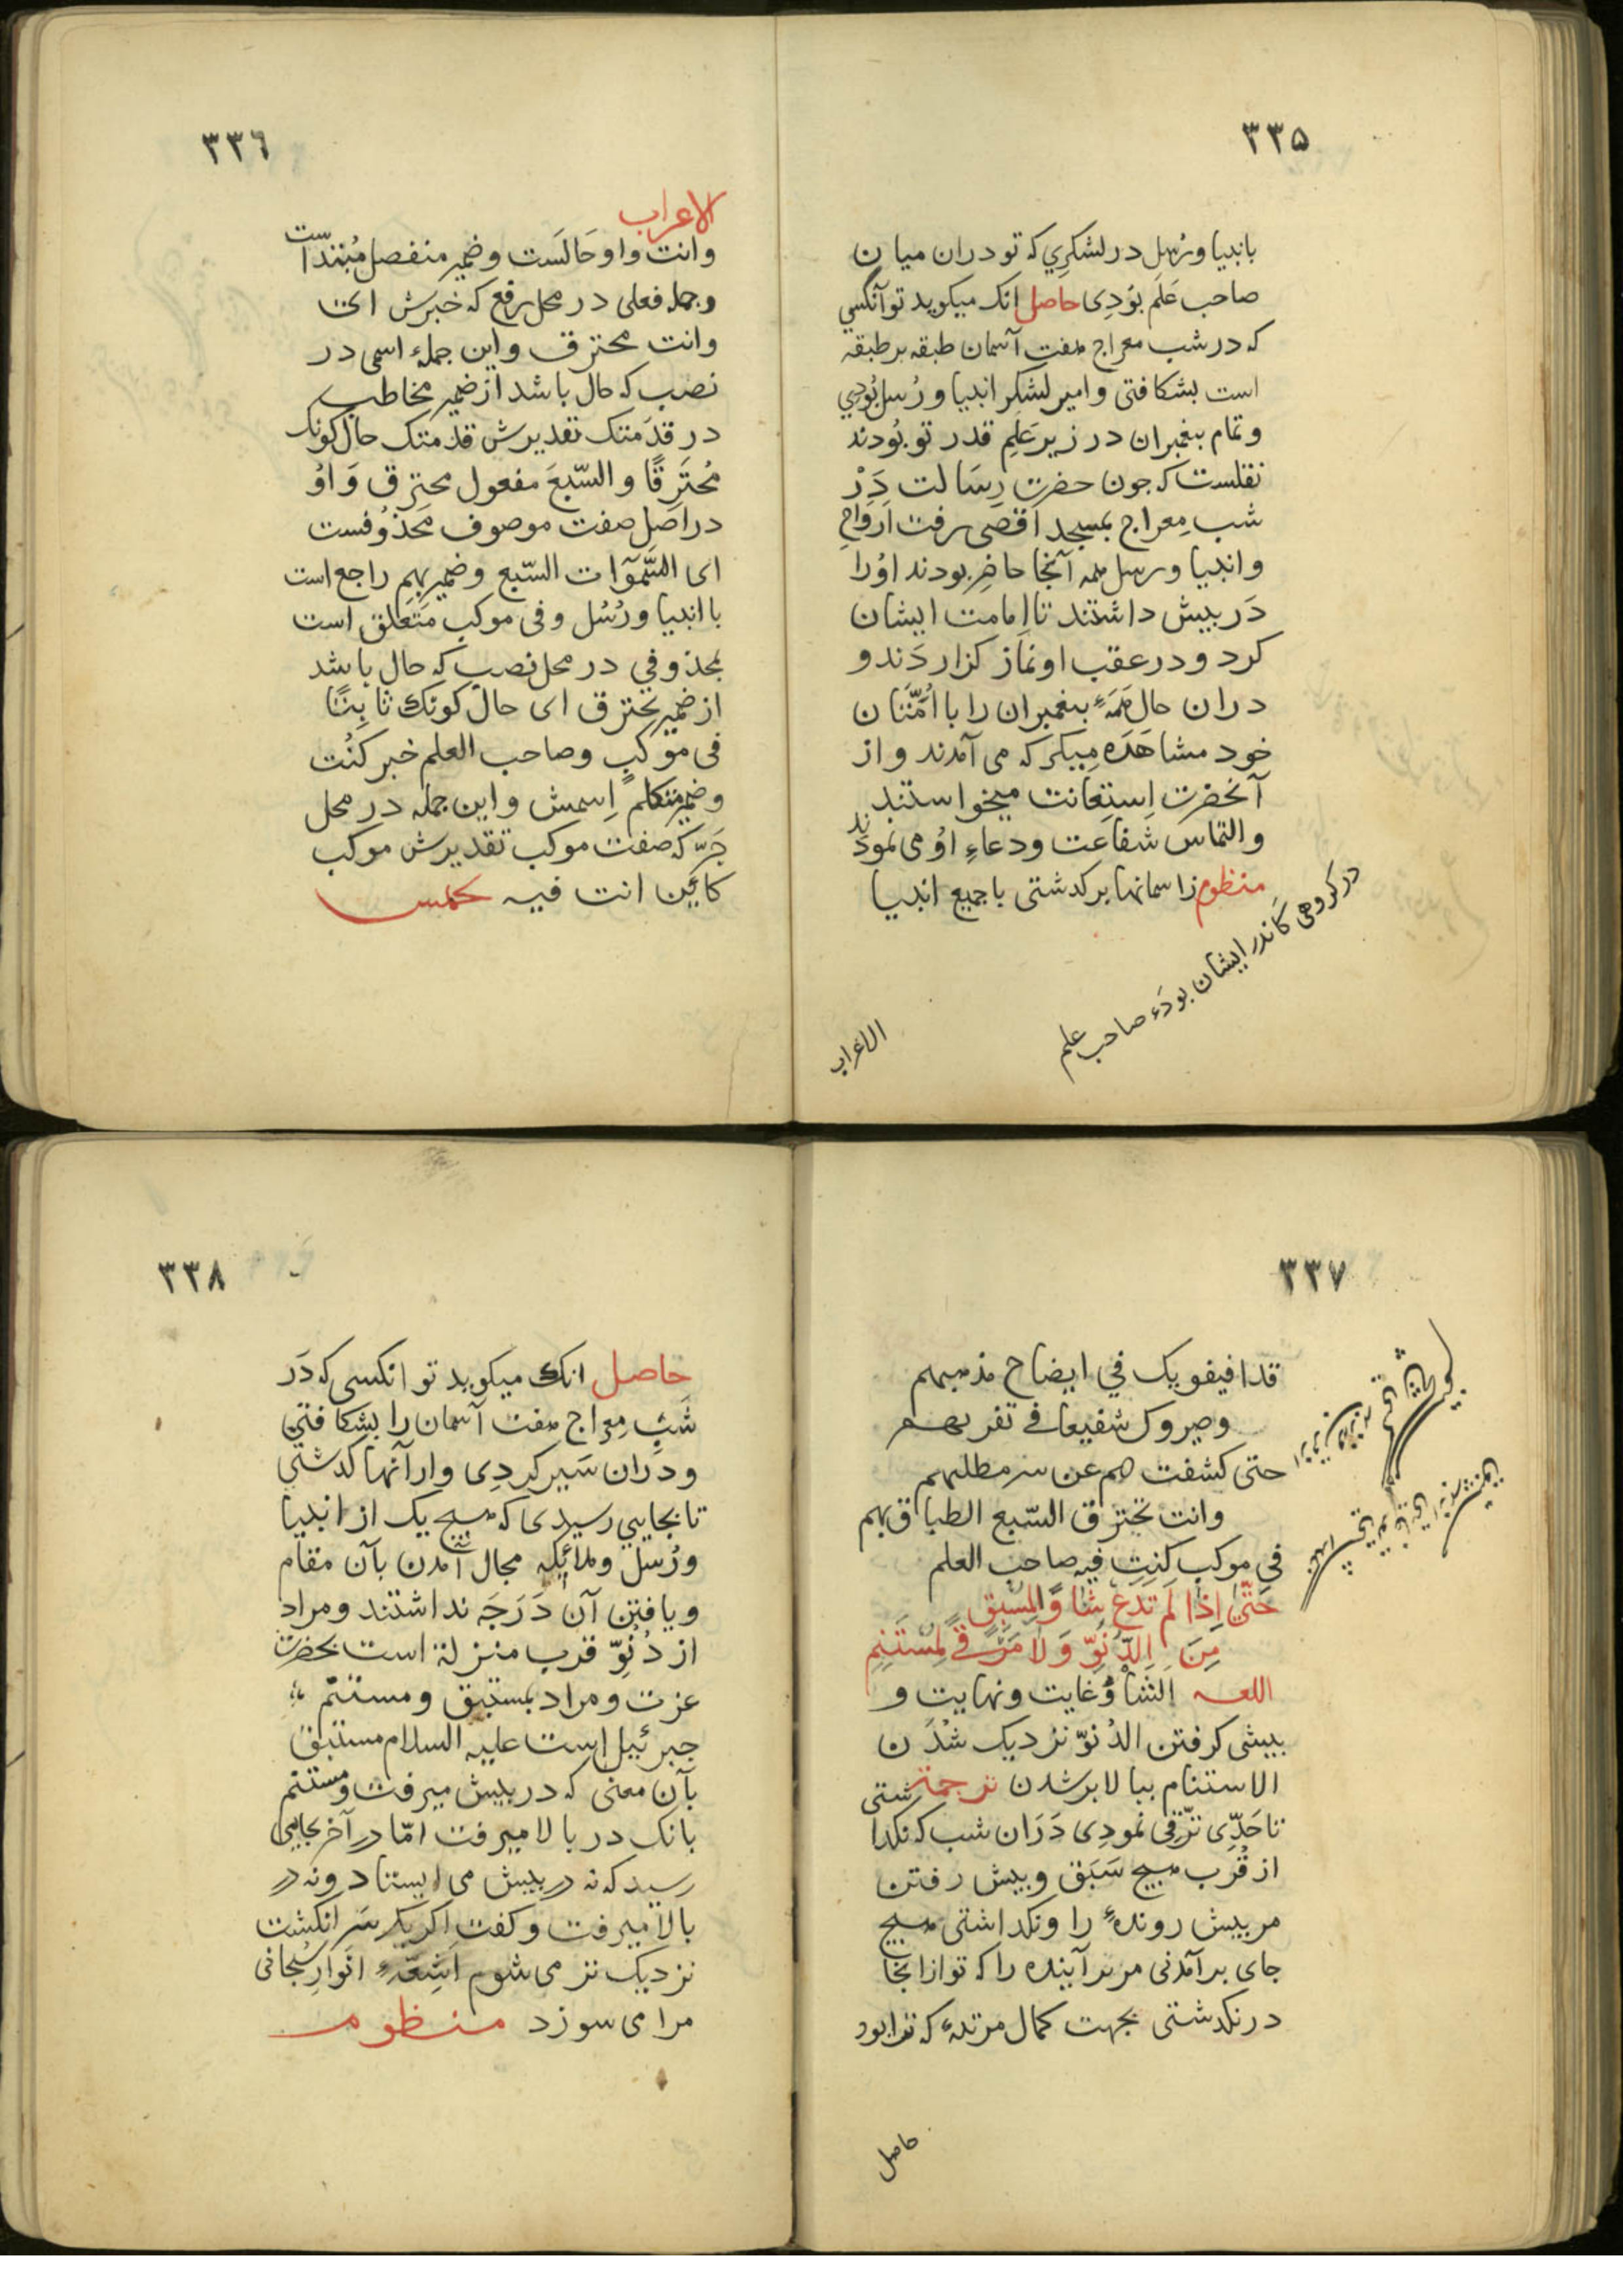 ۳۳۵
بانبیا ورُسل در لشکرِي که تو دران میان
صاحب عَلَم بوُدِی حاصل انک میکوید تو آنکسي
که در شب معراج هفت آسمان طبقه بر طبقه
است بشکافتی و امیر لشکر انبیا و رُسل بُودي
و تمام پیغمبران در زیر عَلَمِ قدر تو بوُدند
نقلست که جون حضرت رِسَالت دَرْ
شب مِعراج بمسجد اقصَی رفت اَروَاحِ
و انبیا و رسل همه آنجا حاضِر بودند اوُرا
دَر پیش داشتند تا امامت ایشان
کرد و در عقب او نمَاز کزاردَند و
دران حال هَمَهٔ پیغمبران را با اُمّتَان
خود مشاهَدَه میکرد که می آمدند و از
آنحضرت اِستِعَانت میخواستند
و التماس شفاعت و دعاءِ اوُ می نمودند
منظوم ز اسمانها بر کدشتی با جمیع انبیا
در کروهی کَاندر ایشان بودَه صاحب علم
الاعراب
۳۳٦
الاعراب
وانت واو حَالَست و ضمیر منفصل مُبتدَاست
و جمله فعلی در محل رفع که خبرش ای
وانت محترق و این جملهٔ اسمی در
نصب که حال باشد از ضمیر مخاطب
در قدَمتک تقدیرش قدمَتک حال کونک
مُحتَرِقًا و السّبعَ مفعول محترق وَ اوُ
در اصَل صفت موصوف مَحَذوُفست
ای السَّمَوٰات السّبع و ضمیر بهم راجع است
با انبیا و رُسُل و فی موکب مَتَعَلق است
بمحذوفي در محل نصب که حال باشد
از ضمیر تحترق ای حال کونک ثابِتًا
فی موکبٍ و صاحب العلم خبر کنُت
و ضمیر متکلم اِسمش و این جمله در محل
جَرّ که صفت موکب تقدیرش موکب
کائِن انت فیه
۳۳۷
في ایضاح مذهبهم
وصیروک شفیعا فے
حتی کشفت هم عن سر مطلبهم
وانت تخترق السّبع الطباق بهم
في موکب کنت فیه صاحب العلم
حَتّیٰ اِذا لَم تَدَعْ شَأوًا لِمُستَبِقٍ
مِنَ الدُّنُوِّ وَلَا مَرْقًے لِمُستَنِمِ
اللغه اَلشَأوُ غایت و نهایت و
پیشی کرفتن الدُنوّ نزدیک شُدَن
الاستنام ببالا بر شدن ترجمه
تا حَدّی ترَقی نموُدِی دَرَان شب که نکدا شتی
از قُرب هیچ سَبَق و پیش رفتن
مر پیش روندهٔ را و نکداشتی هیچ
جای بر آمدنی مر بر آینده را که تو از انجا
در نکدشتی بجهت کمال مرتبهٔ که ترا بود
حاصل
۳۳۸
حاصل انک میکوید تو انکسی که دَر
شَبِ مِعراج هفت آسمان را بشکافتي
و دَران سَیر کردِی و از آنها کدشتي
تا بجایي رسیدی که هیچ یک از انبیا
و رُسل و ملائکه مجال آمدن بآن مقام
و یافتن آن دَرَجَه نداشتند و مراد
از دُنُوِّ قرب منزلة است بحضرت
عزت و مراد بمستبق و مستنم
جبرئیل است علیه السلام مستبق
بآن معنی که در پیش میرفت و مستنم
بانک در بالا میرفت امّا در آخر بجایی
رسید که نه در پیش می ایستاد و نه در
بالا میرفت و کفت اکر یک سَر انکشت
نزدیک تر می شوم اَشِعّهٔ انَوارِ سُبحانی
مرا می سوزد منظوم